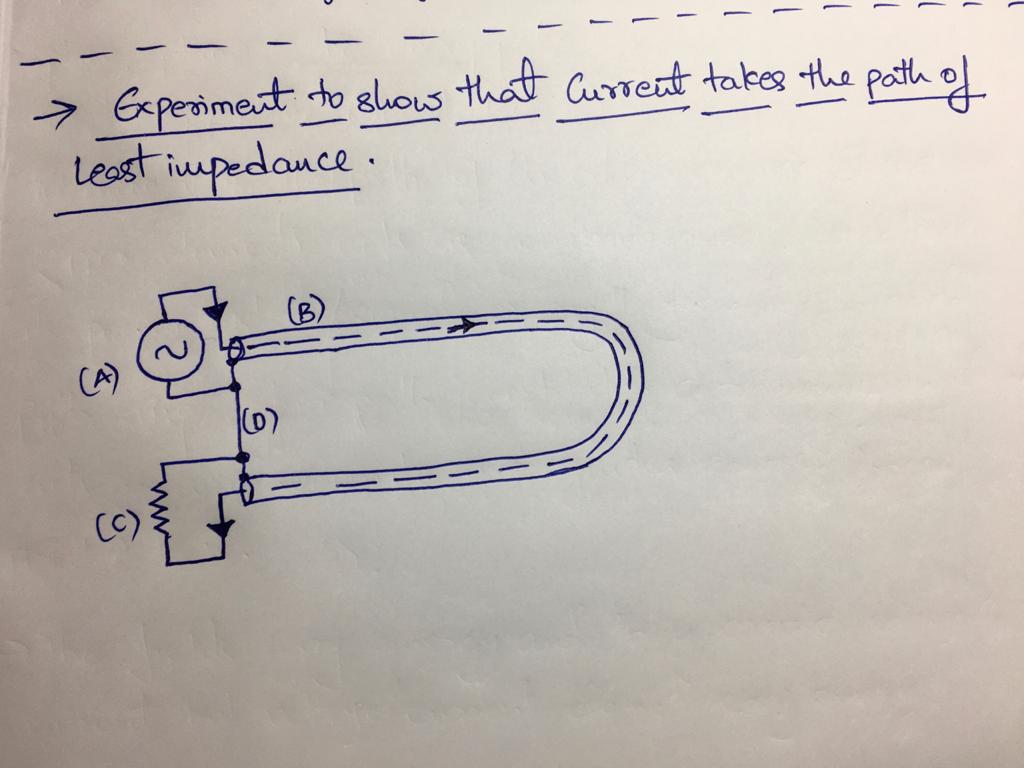 → Experiment to show that Current takes the path of
least impedance.
(B)
(A)
(D)
(C)